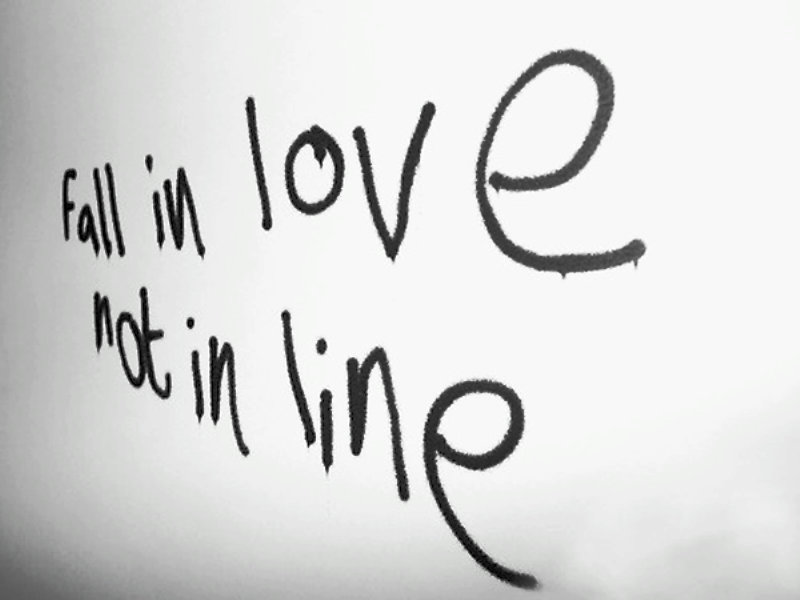 Fall in love
not in line